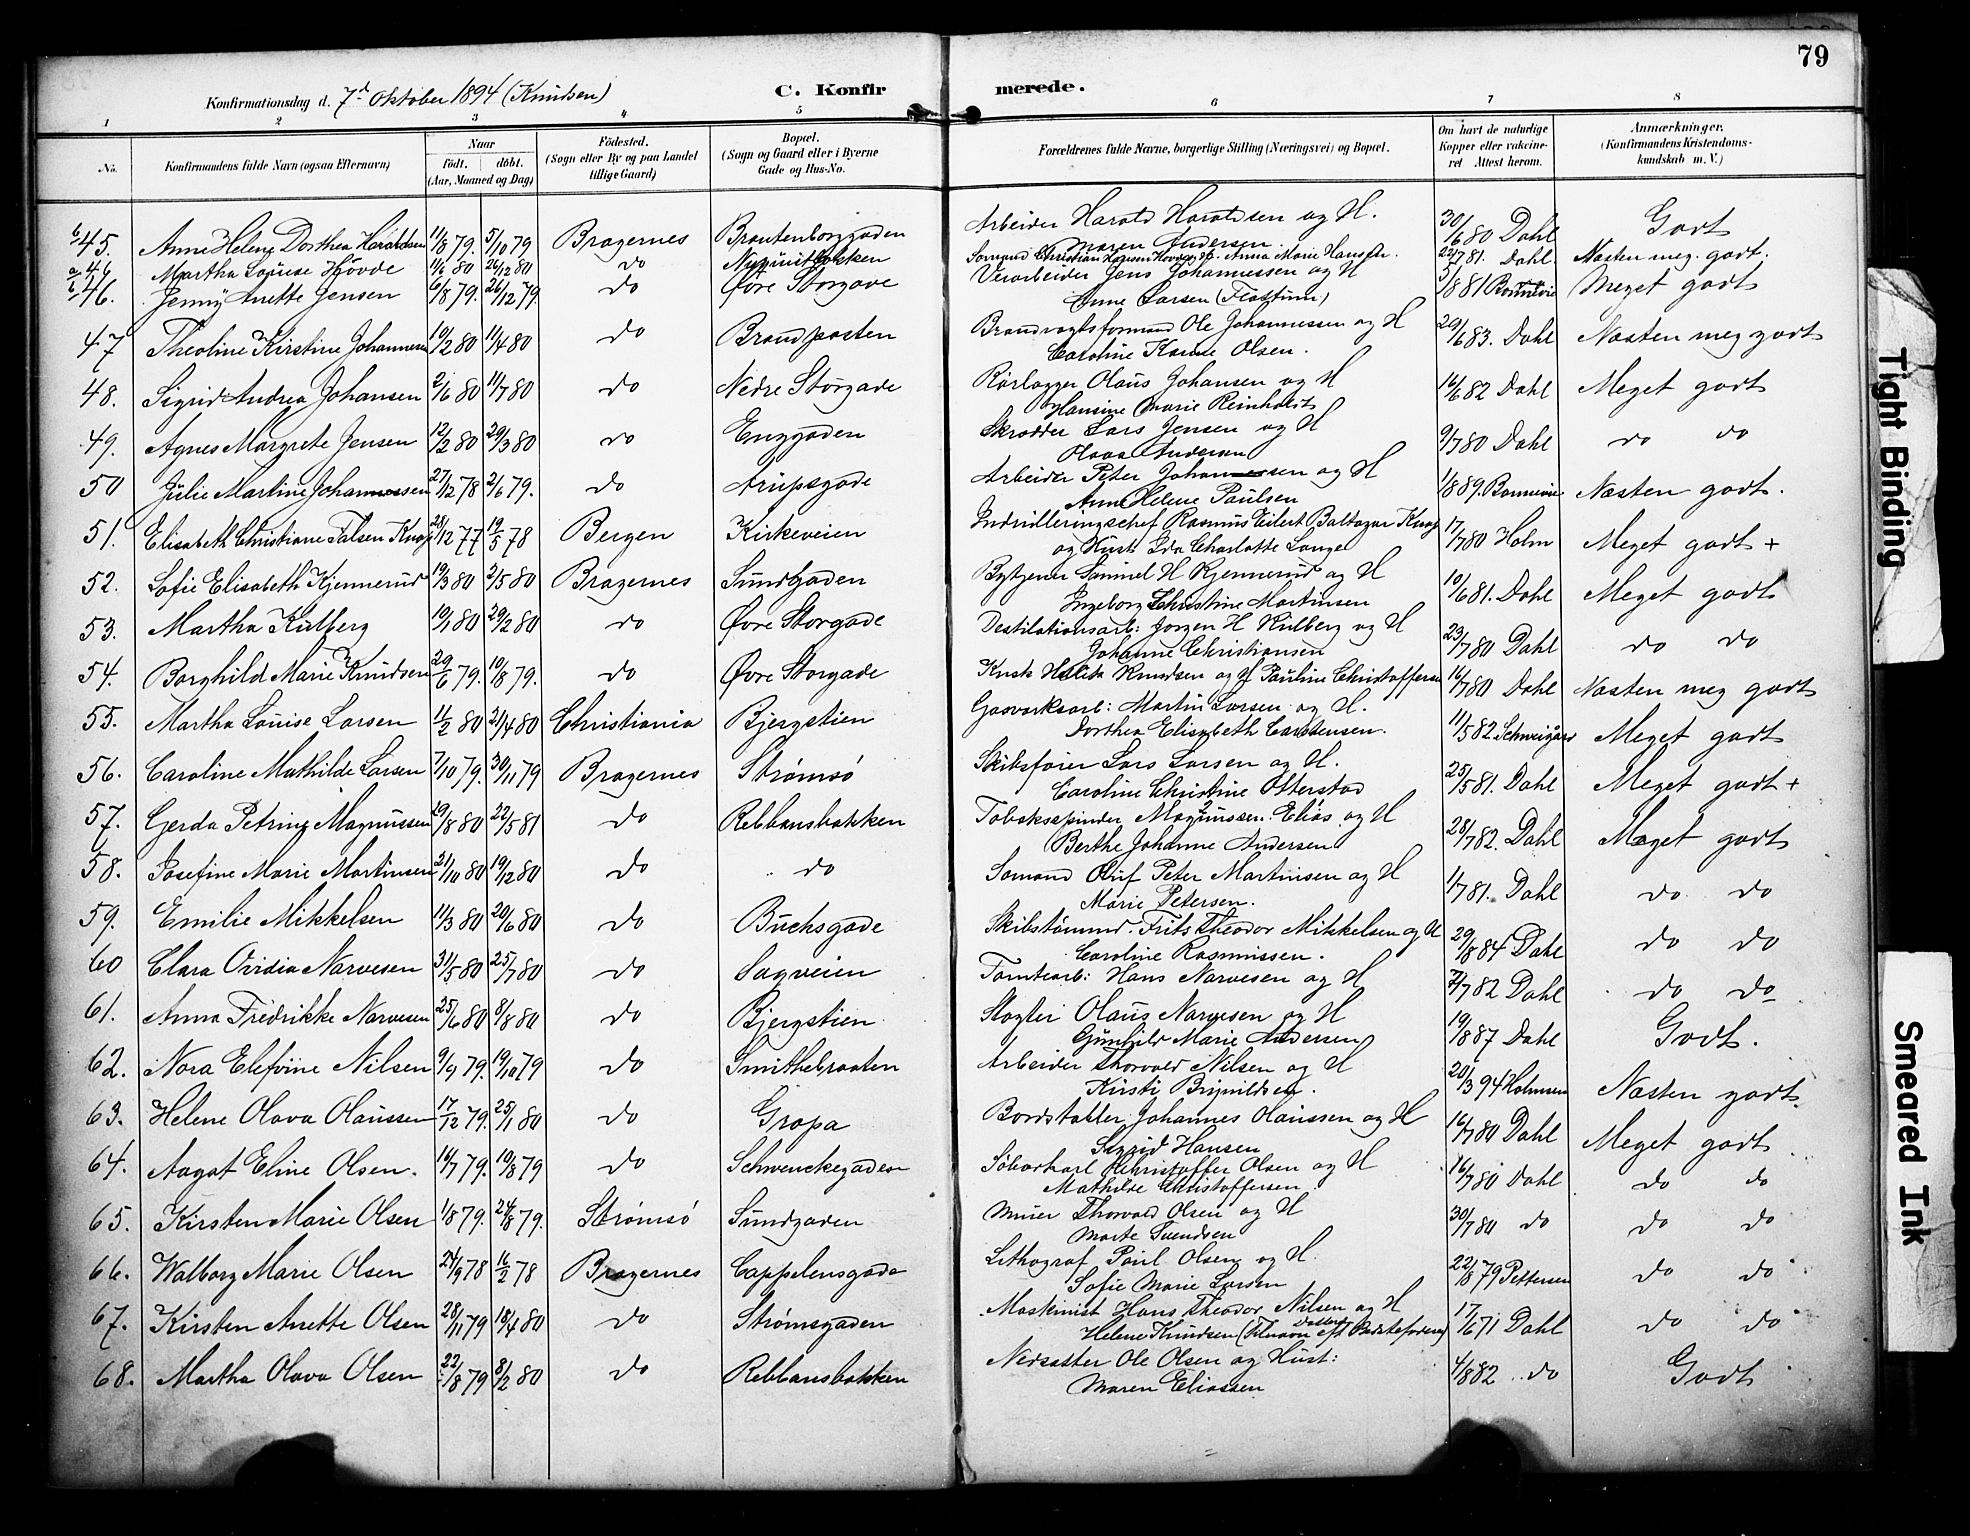 79
Konfirmationsdag d. 7d Oktober 1894 (Knudsen) C. Konfir merede.
1 2 3 4 5 6 7 8
No. Konfirmandens fulde Navn (ogsaa Efternavn) Naar født. døbt. (Aar, Maaned og Dag) Fødested. (Sogn eller By og paa Landet tillige Gaard) Bopæl. (Sogn og Gaard eller i Byerne Gade og Hus-No. Forældrenes fulde Navne, borgerlige Stilling (Næringsvei) og Bopæl. Om havt de naturlige Kopper eller vakcineret Attest herom. Anmærkninger. (Konfirmandens Kristendomskundskab m. V.)
b45. Anne Helene Dorthea Haraldsen 11/8 79. 5/10 79 Bragernes Brantenborggaden Arbeider Harald Haraldsen og H. Maren Andersen. 30/6 80 Dahl Godt
a46 Martha Louise Hovde 1/6 80 26/12 80 do Sømand Christian Hansen Hovde og Anna Marie Hansen. 22/7 81. Dahl. Næsten meg. godt.
b46. Jenny Anette Jensen 6/8 79. 26/12 79. do Øvre Storgade Verkarbeider Jens Johannessen og H Anne Larsen (Flattum) 5/8 81 Bonnevie Meget godt
47 Theoline Kirstine Johannesen 10/2 80 11/4 80 do Brandposten Brandvagtsformand Ole Johannessen og H Caroline Karine Olsen. 20/6 83. Dahl Næsten meg godt
48. Sigrid Andrea Johansen 2/6 80 11/7 80 do Nedre Storgade Rørlægger Olaus Johansen og H Hansine Marie Reinholdt 16/6 82 Dahl Meget godt
49. Agnes Margrete Jensen 12/2 80 29/3 80 do Enggaden Skrædder Lars Jensen og H Olava Andersen 9/7 80 Dahl do do
50 Julie Martine Johannessen 27/12 78 2/6 79. do Arupsgade Arbeider Peter Johannessen og H Anne Helene Paulsen 1/8 89. Bonnevie Næsten godt.
51. Elisabeth Christiane Falsen Knag 28/12 77 19/5 78 Bergen Kirkeveien Indrulleringschef Rasmus Eilert Baltazar Knag og Hust. Ida Charlotte Lange 17/7 80 Holm Meget godt +
52. Sofie Elisabeth Kjennerud 19/3 80 2/5 80 Bragernes Sundgaden Bytjener Samuel H Kjennerud og H Ingeborg Christine Martinsen 10/6 81. Dahl Meget godt
53. Martha Kulberg 19/1 80 29/2 80 do Øvre Storgade Destilationsarb: Jørgen H Kulberg og H Johanne Christiansen 23/7 80 Dahl do do
54. Borghild Marie Knudsen 29/6 79. 10/8 79. do Øvre Storgade Kusk Knudsen og H Pauline Christoffersen 16/7 80 Dahl Næsten meg godt
55. Martha Louise Larsen 11/2 80 21/4 80 Christiania Bjergstien Gasverksarb: Martin Larsen og H. Dorthea Elisabeth Carstensen. 11/5 82 Schweigård Meget godt
56. Caroline Mathilde Larsen 7/10 79. 30/11 79 Bragernes Strømsø Skibsfører Lars Larsen og H. Caroline Christine Otterstad 25/5 81. Dahl Meget godt +
57. Gerda Petrine Magnussen 29/8 80 22/5 81 do Rebbansbakken Tobaksspinder Magnussen Elias og H Berthe Johanne Andersen 28/7 82. Dahl Meget godt
58. Josefine Marie Martinsen 21/10 80 19/12 80 do do Sømand Oluf Peter Martinsen og H Marie Petersen. 1/7 81. Dahl do do
59. Emilie Mikkelsen 11/3 80 20/6 80 do Buchsgade Skibstømmd. Frits Theodor Mikkelsen og H Caroline Rasmussen. 29/8 84 Dahl do do
60 Clara Ovidia Narvesen 31/5 80 25/7 80 do Sagveien Tomtearb: Hans Narvesen og H 7/7 82 Dahl do do
61. Anna Fredrikke Narvesen 25/6 80 8/8 80 do Bjergstien Slagter Olaus Narvesen og H Gunhild Marie Andersen 19/8 87 Dahl Godt.
62. Nora Elefine Nilsen 9/9 79. 19/10 79 do Smithebraaten Arbeider Thorvald Nilsen og H Kirsti Brynildsen. 20/3 94 Holmsen Næsten godt
63. Helene Olava Olaussen 17/12 79. 25/1 80 do Gropa Bordstabler Johannes Olaussen og H Sigrid Hansen 16/7 80 Dahl Meget godt
64. Aagot Eline Olsen. 14/7 79. 19/8 79 do Schwenckegaden Christoffer Olsen og H Mathilde Christoffersen 16/7 80 Dahl do do
65. Kirsten Marie Olsen 1/8 79. 24/8 79. Strømsø Sundgaden Murer Thorvald Olsen og H Marte Svendsen 30/7 80 do do do
66. Walborg Marie Olsen 24/9 78 16/2 78 Bragernes Cappelensgade Lithograf Paul Olsen og H. Sofie Marie Larsen 22/8 79 Pettersen do do
67. Kirsten Anette Olsen 28/11 79 18/4 80 do Strømsgaden Maskinist Hans Theodor Nilsen og H Helene Knudsen (Tilnavn eft Bedstefaderen) 17/6 71 Dahl do do
68. Martha Olava Olsen 22/8 79 8/2 80 do Rebbansbakken Nedsætter Ole Olsen og Hust: Maren Eliassen 4/8 82 do Godt
Tight Binding
Smeared Ink